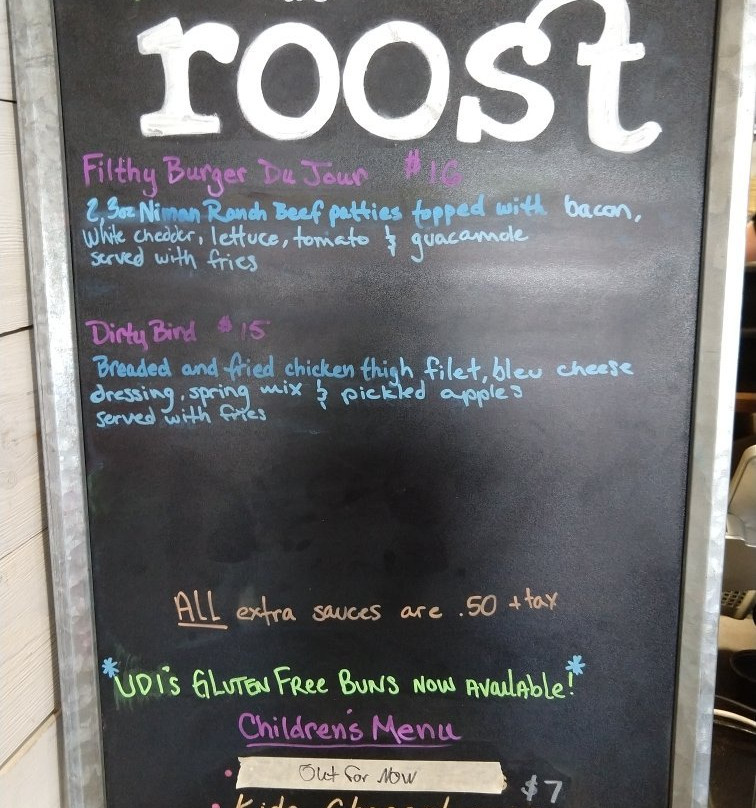 roost
Filthy Burger Du Jour $16
2, 3oz Niman Ranch Beef patties topped with bacon,
White chedder, lettuce, tomato & guacamole
served with fries
Dirty Bird $15
Breaded and fried chicken thigh filet, bleu cheese
dressing, spring mix & pickled apples
served with fries
ALL extra sauces are .50 + tax
*UDI's GLUTEN FREE BUNS NOW AVAILABLE!*
Children's Menu
• Out for Now $7